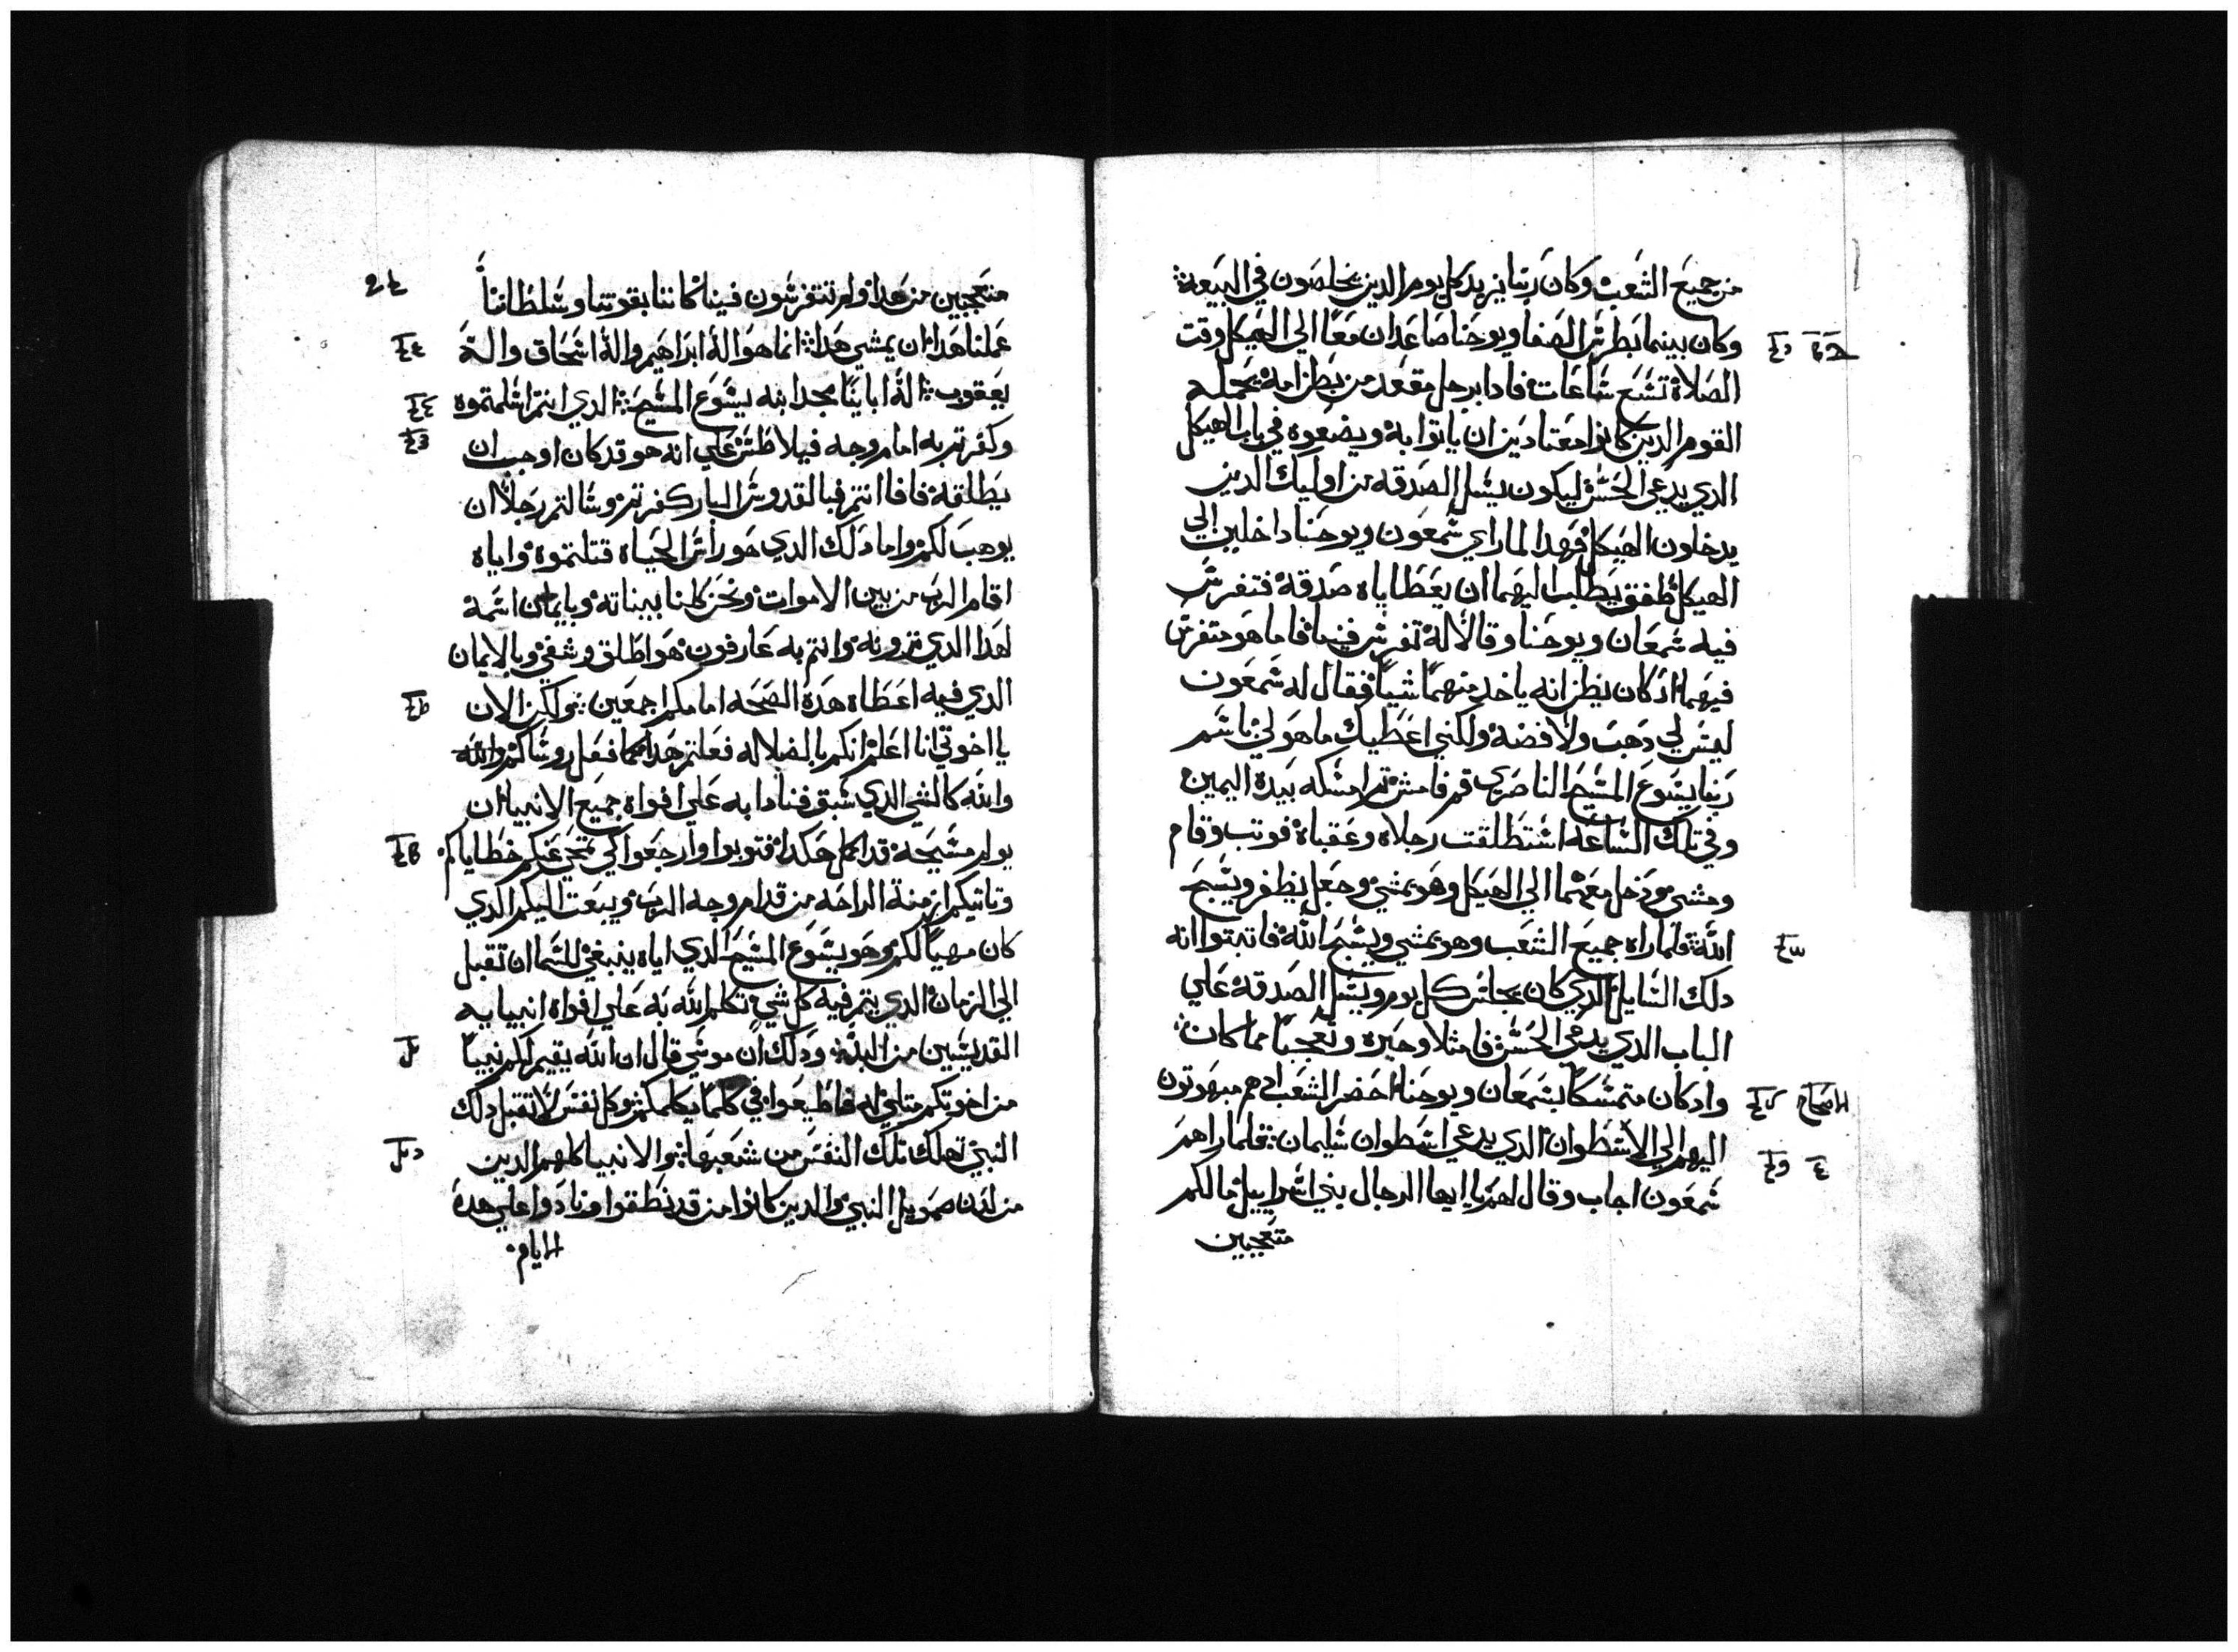 من جميع الشعب وكان ربنا يزيد كل يوم الدين يخلصون في البيعة
وكان بينما بطرش الصفا ويوحنا صاعدان معا الي الهيكل وقت
الصلاة تشع شاعات فادا برجل مقعد من بطن امه يحمله
القوم الدين كانوا معتادين ان ياتوا به ويضعوه في باب الهيكل
الدي يدعي الحشن ليكون يشل الصدقه من اوليك الدين
يدخلون الهيكل فهدا لما راي شمعون ويوحنا داخلين الي
الهيكل طفق يطلب اليهما ان يعطاياه صدقة فتفرش
فيه شمعان ويوحنا وقالا له تفرش فينا فاما هو متفرش
فيهما اد كان يظن انه ياخد منهما شيا فقال له شمعون
ليش لي دهب ولا فضة ولكني اعطيك ما هو لي باشم
ربنا يشوع المشيح الناصري قم فامش تم امشكه بيده اليمين
وفي تلك الشاعه اشتطلقت رجلاه وعقباه فوتب وقام
ومشي ودخل معهما الي الهيكل وهو يمشي وجعل يطفر ويشبح
الله فلما راه جميع الشعب وهو يمشي ويشبح الله فاتبتوا انه
دلك الشايل الدي كان يجلش كل يوم ويشل الصدقة علي
الباب الدي يدعي الحشن فامتلاو حيره وتعجبا مما كان
وادكان متمشكا بشمعان ويوحنا احضر الشعب ادهم مبهوتون
الاصحاح
اليهم الي الاشطوان الدي يدعي اشطوان شليمان فلما راهم
شمعون اجاب وقال لهم يا ايها الرجال بني اشراييل ما لكم
متعجبين
متعجبين من هدا ولم تتفرشون فينا كاننا بقوتنا وشلطاننا
عملنا هدا ان يمشي هدا انما هو اله ابراهيم واله اشحاق واله
يعقوب اله اباينا مجد ابنه يشوع المشيح الدي انتم اشلمتموه
وكفرتم به امام وجه فيلاطش علي انه هو قد كان اوجب ان
يطلقه فاما انتم فبالقدوش البار كفرتم وشالتم رجلا ان
يوهب لكم واما دلك الدي هو راش الحياه قتلتموه واياه
اقام الرب من بين الاموات ونحن كلنا بيناته وبايمان اشمه
لهدا الدي ترونه وانتم به عارفون هو اطلق وشفي وبالايمان
الدي فيه اعطاه هده الصحه امامكم اجمعين ولكن الان
يا اخوتي انا اعلم انكم بالضلاله فعلتم هدا كما فعل روشاكم والله
والله كالشي الدي شبق فنادا به علي افواه جميع الانبيا ان
يولم مشيحه قد اكمل هكدا فتوبوا وارجعوا كي تمحي عنكم خطاياكم
وتاتيكم ازمنة الراحه من قدام وجه الرب ويبعت اليكم الدي
كان مهيا لكم وهو يشوع المشيح الدي اياه ينبغي للشما ان تقبل
الي الزمان الدي يتم فيه كل شي تكلم الله به علي افواه انبيايه
القديشين من البد ودلك ان موشي قال ان الله يقيم لكم نبيا
من اخوتكم متلي له فاطيعوا في كلما يكلمكم وكل نفش لا تقبل دلك
النبي تهلك تلك النفش من شعبها والانبيا كلهم الدين
من لدن صمويل النبي والدين كانوا من قد نطقوا ونادوا علي هده
الايام